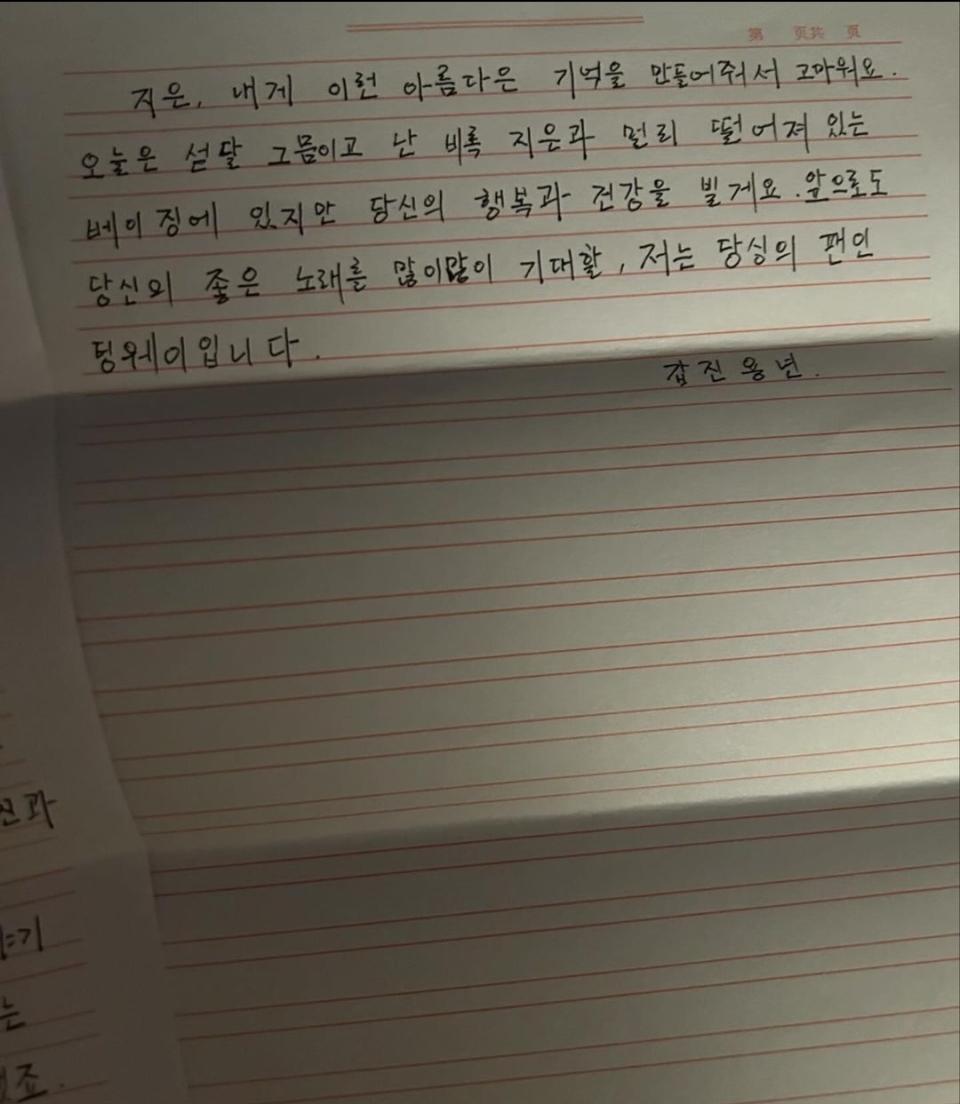 第 页共 页
지은, 내게 이런 아름다은 기억을 만들어줘서 고마워요.
오늘은 섣달 그믐이고 난 비록 지은과 멀리 떨어져 있는
베이징에 있지만 당신의 행복과 건강을 빌게요.앞으로도
당신의 좋은 노래를 많이많이 기대할, 저는 당싱의 팬인
텅웨이입니다.
갑진용년.
신과
는
죠.